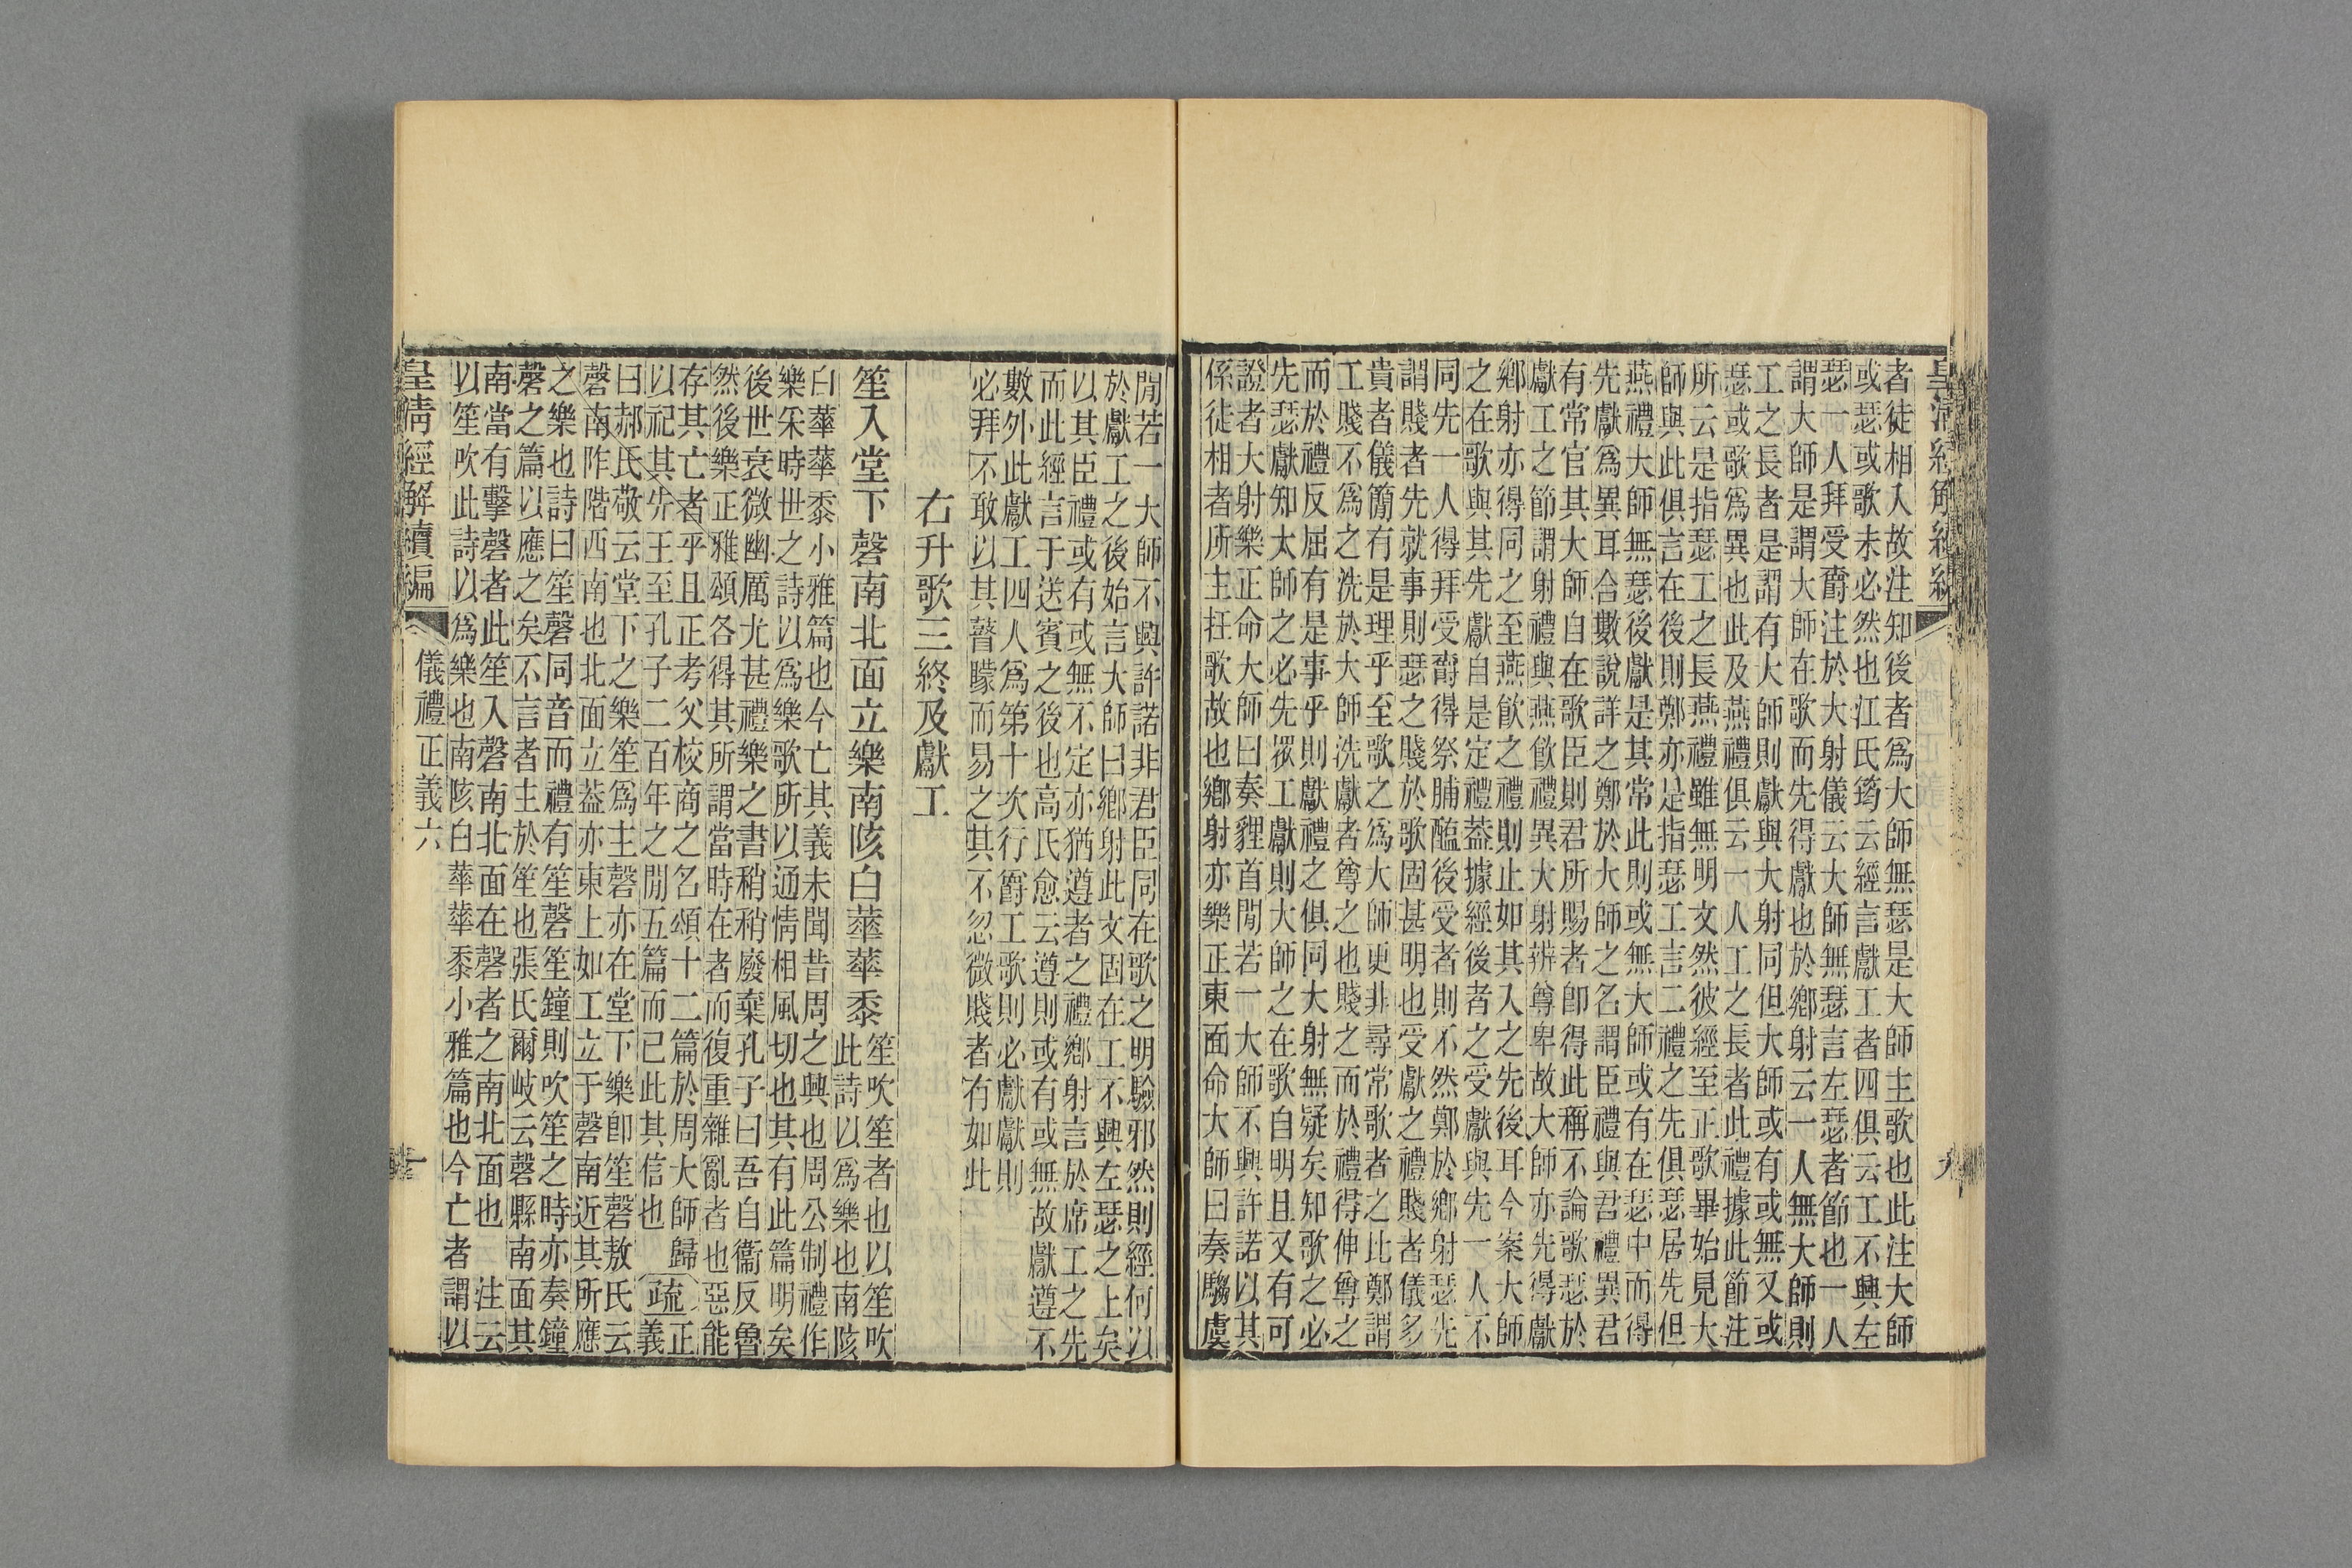 皇清經解續編
者徒相入故注知後者爲大師無瑟是大師主歌也此注大師
或瑟或歌未必然也江氏筠云經言獻工者四俱云工不興左
瑟一人拜受爵注於大射儀云大師無瑟言左瑟者節也一人
謂大師是謂大師在歌而先得獻也於鄉射云一人無大師則
工之長者是謂有大師則獻與大射同但大師或有或無又或
瑟或歌爲異也此及燕禮俱云一人工之長者此禮據此節注
所云是指瑟工之長燕禮雖無明文然彼經至正歌畢始見大
師與此俱言在後則鄭亦是指瑟工言二禮之先俱瑟居先但
燕禮大師無瑟後獻是其常此則或無大師或有在瑟中而得
先獻爲異耳合數說詳之鄭於大師之名謂臣禮與君禮異君
有常官其大師自在歌臣則君所賜者卽得此稱不論歌瑟於
獻工之節謂射禮與燕飮禮異大射辨尊卑故大師亦先得獻
鄉射亦得同之至燕飮之禮則止如其入之先後耳今案大師
之在歌與其先獻自是定禮葢據經後者之受獻與先一人不
同先一人得拜受爵得祭脯醢後受者則不然鄭於鄉射瑟先
謂賤者先就事則瑟之賤於歌固甚明也受獻之禮賤者儀多
貴者儀簡有是理乎至歌之爲大師更非尋常歌者之比鄭謂
工賤不爲之洗於大師洗獻者尊之也賤之而於禮得伸尊之
而於禮反屈有是事乎則獻禮之俱同大射無疑矣知歌之必
先瑟獻知太師之必先掇工獻則大師之在歌自明且又有可
證者大射樂正命大師曰奏貍首閒若一大師不興許諾以其
係徒相者所主抂歌故也鄉射亦樂正東面命大師曰奏騶虞
閒若一大師不興許諾非君臣同在歌之明驗邪然則經何以
於獻工之後始言大師曰鄉射此文固在工不興左瑟之上矣
以其臣禮或有或無不定亦猶遵者之禮鄉射言於席工之先
而此經言于送賓之後也高氏愈云遵則或有或無故獻遵不
數外此獻工四人爲第十次行爵工歌則必獻獻則
必拜不敢以其瞽矇而易之其不忍微賤者有如此
右升歌三終及獻工
笙入堂下磬南北面立樂南陔白華華黍
笙吹笙者也以笙吹
此詩以爲樂也南陔
白華華黍小雅篇也今亡其義未聞昔周之興也周公制禮作
樂采時世之詩以爲樂歌所以通情相風切也其有此篇明矣
後世衰微幽厲尤甚禮樂之書稍稍廢棄孔子曰吾自衞反魯
然後樂正雅頌各得其所謂當時在者而復重雜亂者也惡能
存其亡者乎且正考父校商之名頌十二篇於周大師歸
以祀其先王至孔子二百年之閒五篇而已此其信也
疏
正
義
曰郝氏敬云堂下之樂笙爲主磬亦在堂下樂卽笙磬敖氏云
磬南阼階西南也北面立葢亦東上如工立于磬南近其所應
之樂也詩曰笙磬同音而禮有笙磬笙鐘則吹笙之時亦奏鐘
磬之篇以應之矣不言者主於笙也張氏爾岐云磬縣南面其
南當有擊磬者此笙入磬南北面在磬者之南北面也 注云
以笙吹此詩以爲樂也南陔白華華黍小雅篇也今亡者謂以
皇清經解續編
儀禮正義六